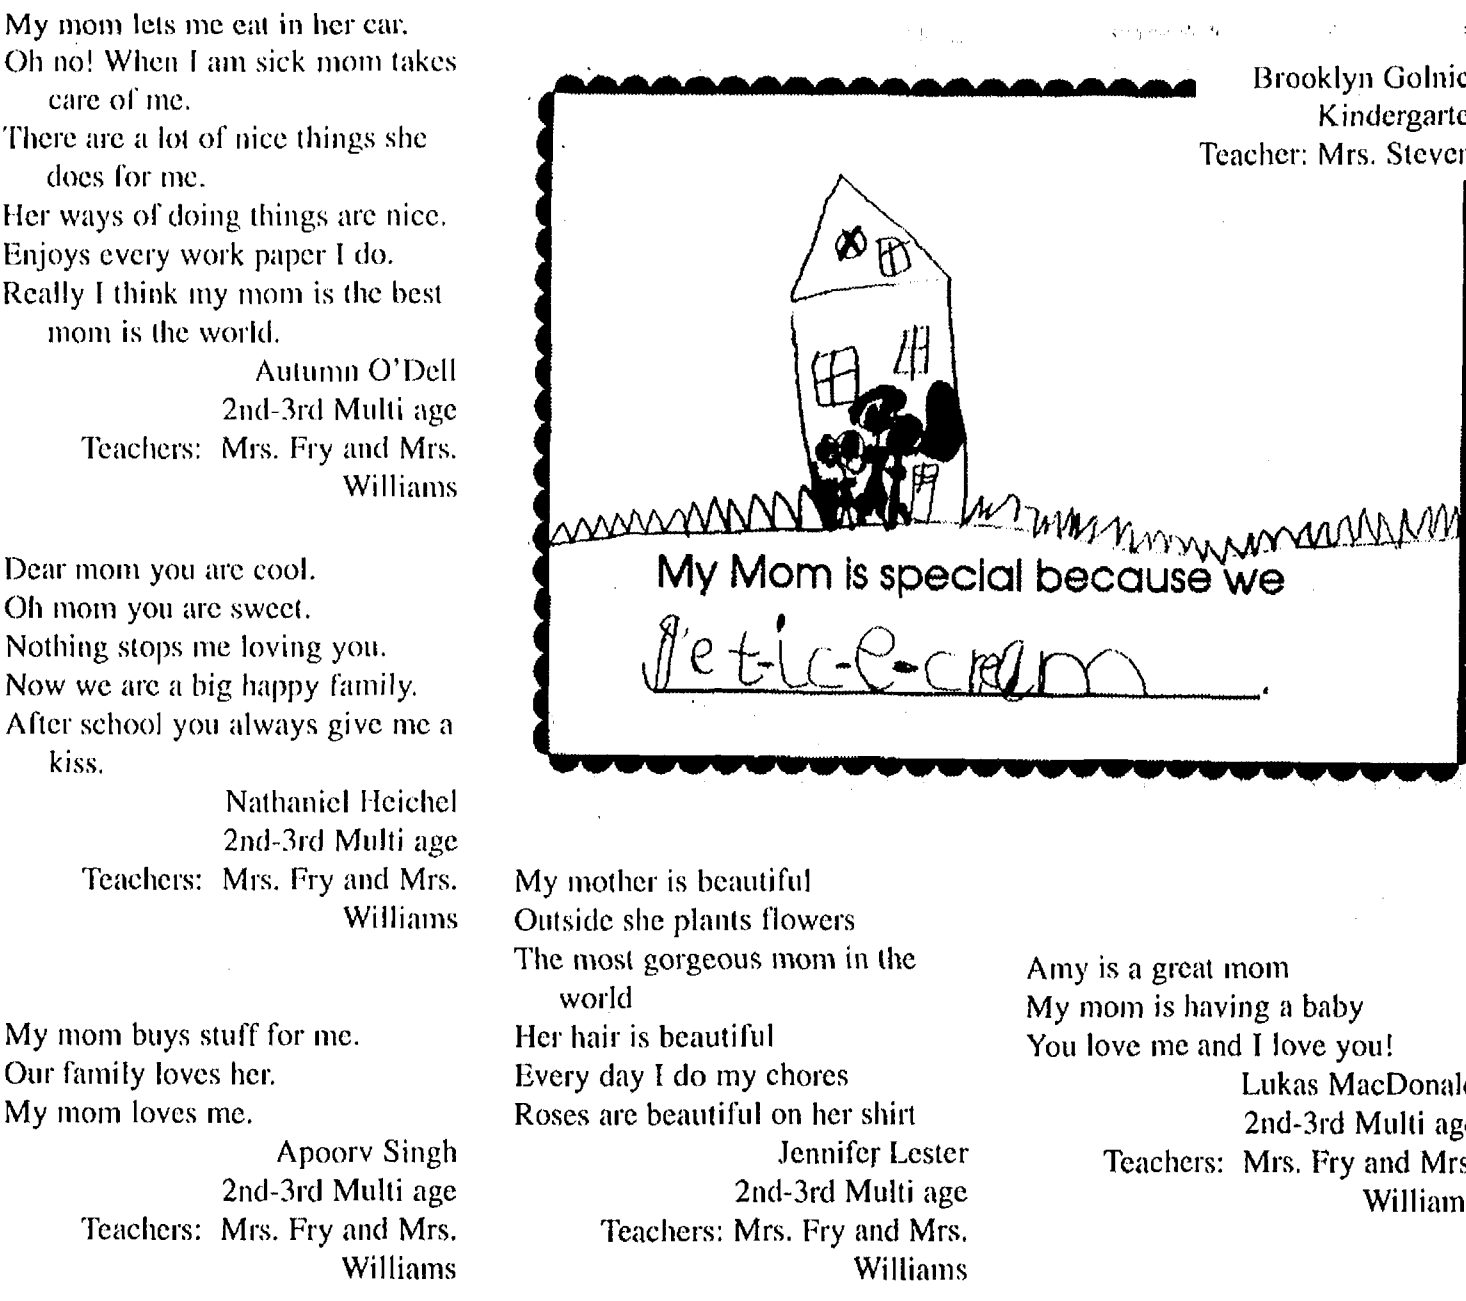 My mom lets me eat in her car.
Oh no! When I am sick mom takes
care of me.
There are a lot of nice things she
does for me.
Her ways of doing things are nice.
Enjoys every work paper I do.
Really I think my mom is the best
mom is the world.
Autumn O'Dell
2nd-3rd Multi age
Teachers: Mrs. Fry and Mrs.
Williams
Dear mom you are cool.
Oh mom you are sweet.
Nothing stops me loving you.
Now we are a big happy family.
After school you always give me a
kiss.
Nathaniel Heichel
2nd-3rd Multi age
Teachers: Mrs. Fry and Mrs.
Williams
My mom buys stuff for me.
Our family loves her.
My mom loves me.
Apoorv Singh
2nd-3rd Multi age
Teachers: Mrs. Fry and Mrs.
Williams
Brooklyn Golnic
Kindergarte
Teacher: Mrs. Steven
My Mom is special because we
get-ic-e-cream
My mother is beautiful
Outside she plants flowers
The most gorgeous mom in the
world
Her hair is beautiful
Every day I do my chores
Roses are beautiful on her shirt
Jennifer Lester
2nd-3rd Multi age
Teachers: Mrs. Fry and Mrs.
Williams
Amy is a great mom
My mom is having a baby
You love me and I love you!
Lukas MacDonald
2nd-3rd Multi age
Teachers: Mrs. Fry and Mrs
William